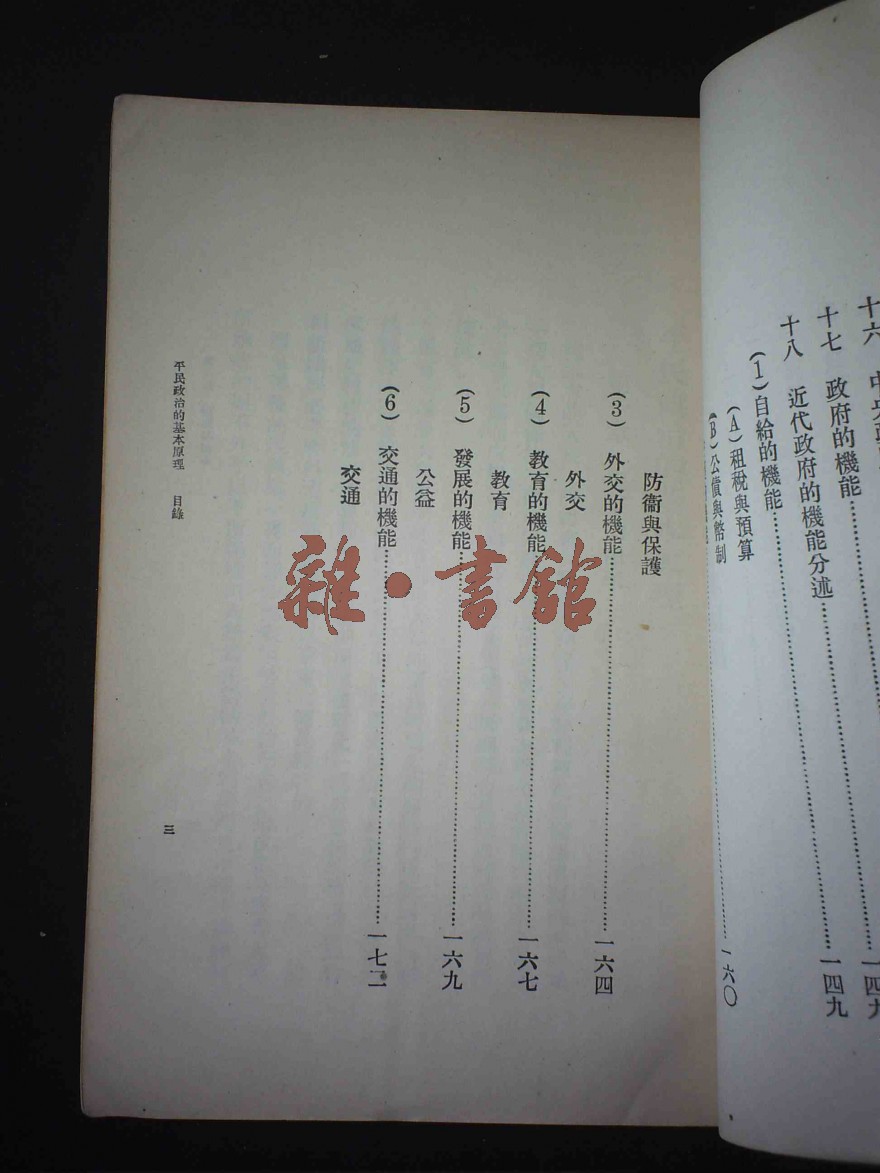 十六
十七　政府的機能……一四九
十八　近代政府的機能分述……一四九
(1)自給的機能
(A)租稅與預算
(B)公債與幣制
一六〇
防衞與保護
(3)　外交的機能……一六四
外交
(4)　教育的機能……一六七
教育
(5)　發展的機能……一六九
公益
(6)　交通的機能……一七二
交通
平民政治的基本原理　目錄
三
雜·書館